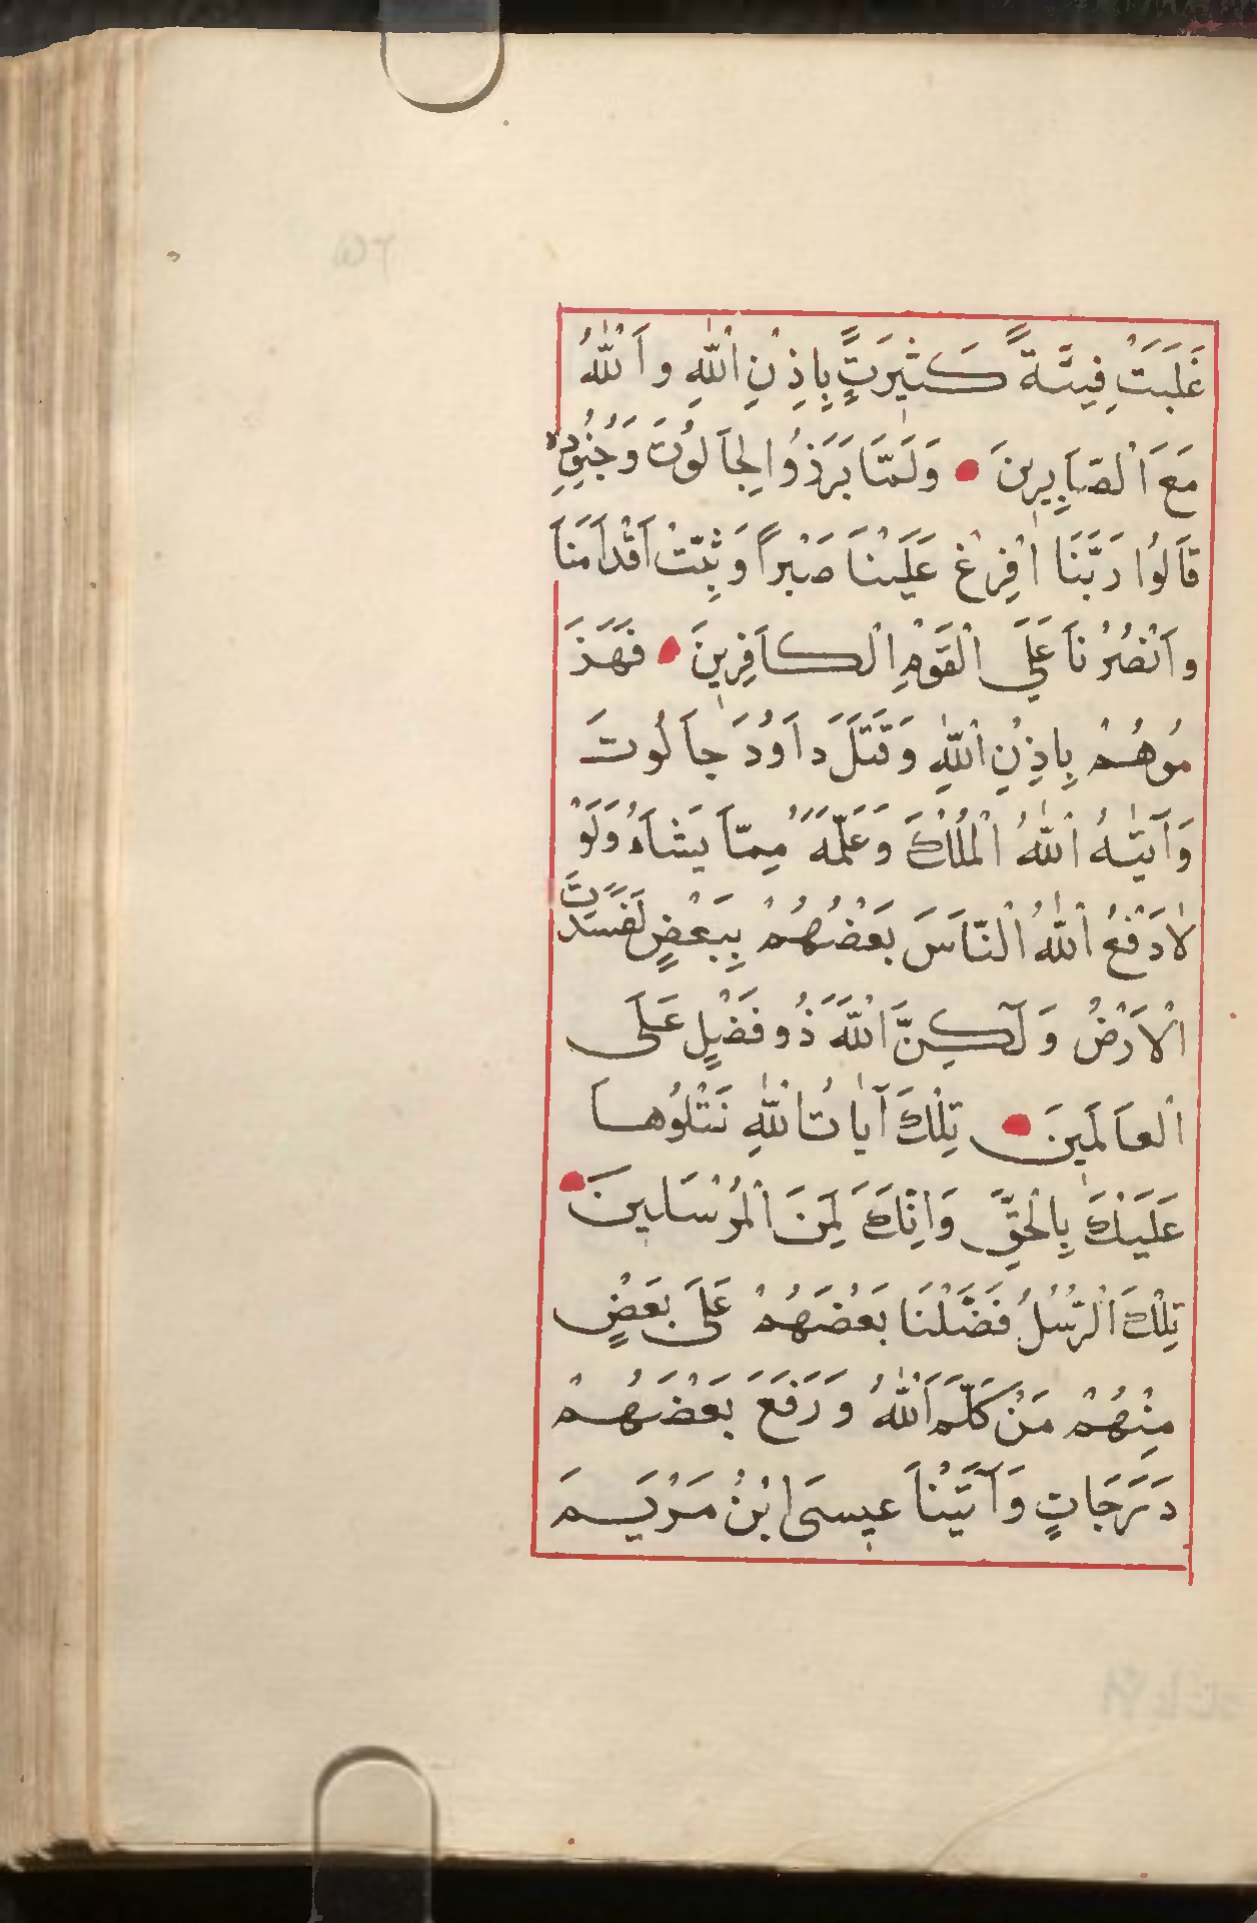 غَلَبَتْ فِيئَةً كَثِيرَتٍ بِاِذِنِ اْللّٰهِ واَللّٰهُ
مَعَ اَلصَاَبِرِينَ وَلَمَّا بَرَذُوا لِجاَلُوتَ وَجُنُودِهِ
قاَلُوا رَبَّنَا اَفْرِغْ عَلَيْناَ صَبْراً وَثَبِّتْ اَقْداَمَناَ
واَنْصُرْناَ عَلَي اْلقَوْمِ اْلكاَفِرِينَ فَهَزَ
مُوهُمْ بِاِذِنِ اْللّٰهِ وَقَتَلَ داَوُدَ جاَلُوتَ
وَآتَيٰهُ اْللّٰهُ اْلمُلْكَ وَعَلَّمَهُ مِمّاَ يَشاَءُ وَلَوْ
لاٰدَفْعُ اْللّٰهُ اْلنّاَسَ بَعْضُهُمْ بِبَعْضٍ لَفَسَدَتَ
اْلاَرْضُ وَلَكِنَّ اْللّٰهَ ذُو فَضْلٍ عَلَى
اْلعاَلَمِينَ تِلْكَ آياَتُ اْللّٰهِ نَتْلُوهاَ
عَلَيْكَ بِالْحَقِّ وَاِنَّكَ لَمِنَ اْلمُرْسَلِينَ
تِلْكَ اْلرُّسُلُ فَضَّلْنَا بَعْضَهُمْ عَلَى بَعْضٍ
مِنْهُمْ مَنْ كَلَّمَ اَللّٰهُ وَرَفَعَ بَعْضَهُمْ
دَرَجَاتٍ وَآتَيْناَ عِيسَى ابْنُ مَرْيَمَ